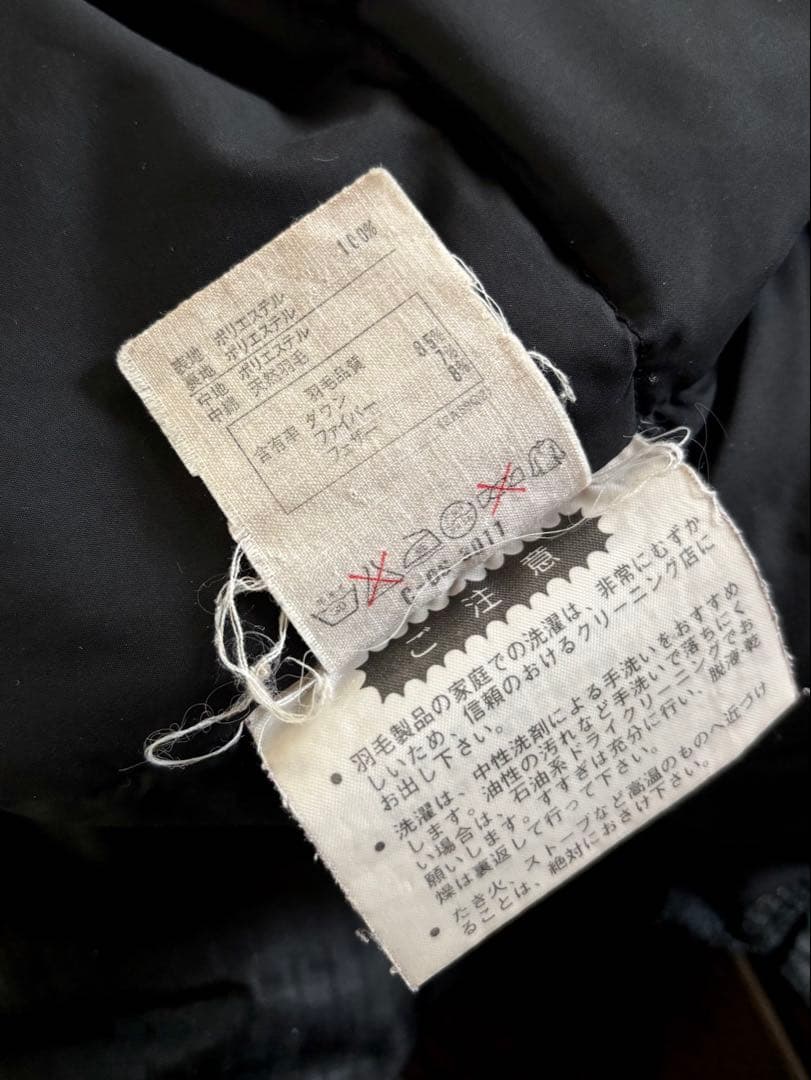 表地 ポリエステル 100%
裏地 ポリエステル
中地 ポリエステル
中綿 天然羽毛
羽毛品質
含有率 ダウン 85%
ファイバー 7%
フェザー 8%
ご注意
● 羽毛製品の家庭での洗濯は、非常にむずか
しいため、信頼のおけるクリーニング店に
お出し下さい。
● 洗濯は、中性洗剤による手洗いをおすすめ
します。油性の汚れなど手洗いで落ちにく
い場合は、石油系ドライクリーニングでお
願いします。すすぎは充分に行い、脱液乾
燥は裏返して行って下さい。
● たき火、ストーブなど高温のものへ近づけ
ることは、絶対におさけ下さい。